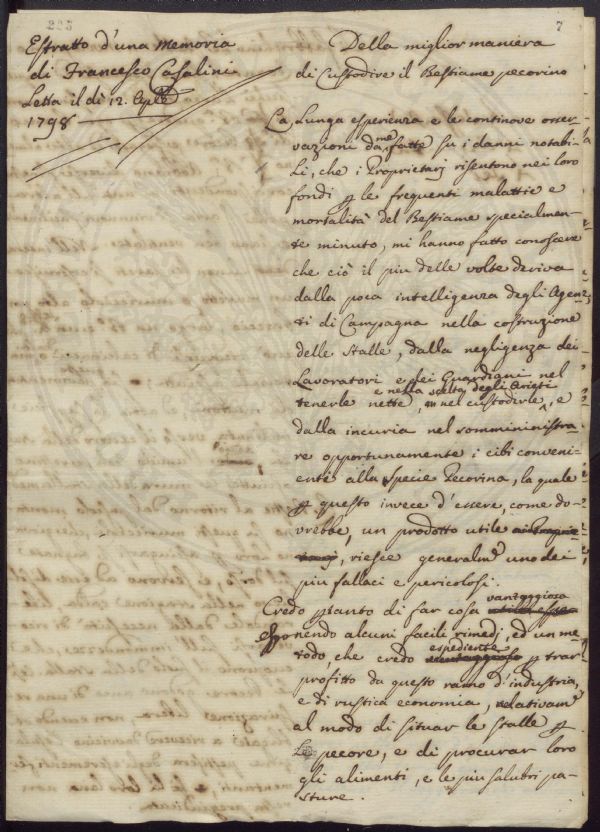 223
7
Estratto d'una Memoria
di Francesco Casalini
Letta il dì 12. Aple
1798
Della miglior maniera
di Custodire il Bestiame pecorino
La Lunga esperienza e le continove osser-
vazioni da me fatte su i danni notabi-
li, che i Proprietarj risentono nei loro
fondi p le frequenti malattie e
mortalità del Bestiame specialmen-
te minuto, mi hanno fatto conoscere
che ciò il piu delle volte deriva
dalla poca intelligenza degli Agen-
ti di Campagna nella costruzione
delle Stalle, dalla negligenza dei
Lavoratori e dei Guardiani nel
tenerle nette, nel custodirle, e nella scelta degli Arieti, e
dalla incuria nel somministra-
re opportunamente i cibi conveni-
enti alla specie Pecorina, la quale
p questo invece d'essere, come do-
vrebbe, un prodotto utile
, riesce generalme uno dei
piu fallaci e pericolosi.
Credo ptanto di far cosa vantaggiosa
esponendo alcuni facili rimedj, ed un me-
todo, che credo espediente p trar
profitto da questo ramo d'industria,
e di rustica economia, relativame
al modo di situar le Stalle p
Le pecore, e di procurar loro
gli alimenti, e le piu salubri pa-
sture.